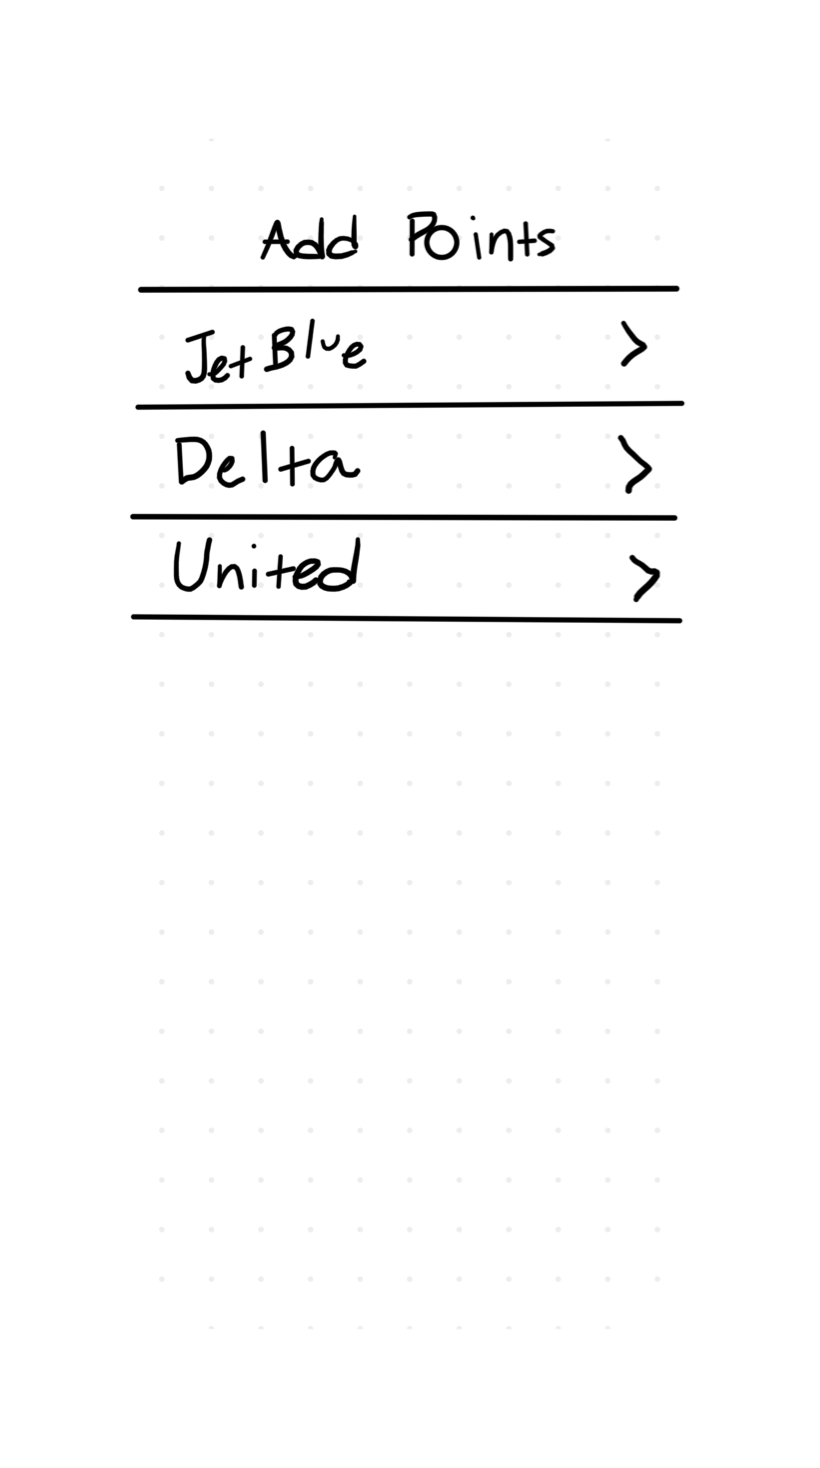 Add Points
JetBlue >
Delta >
United >